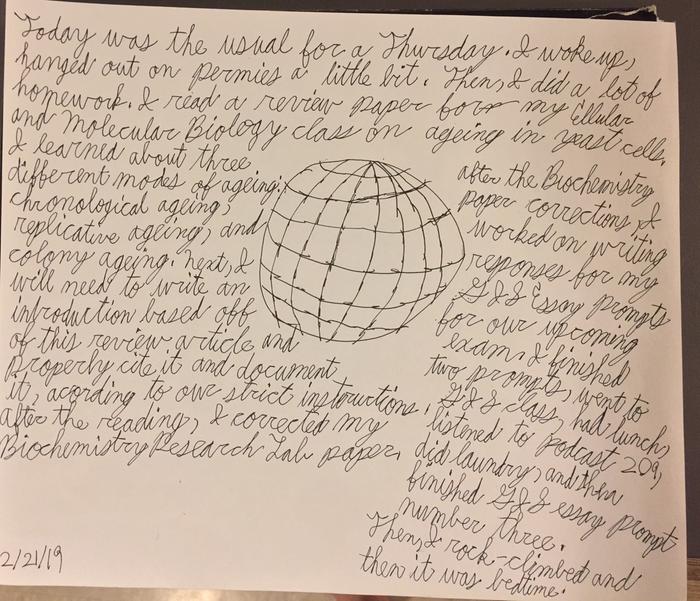 Today was the usual for a Thursday. I woke up,
hanged out on permies a little bit. Then, I did a lot of
homework. I read a review paper for my Cellular
and Molecular Biology class on ageing in yeast cells.
I learned about three
different modes of ageing:
chronological ageing,
replicative ageing, and
colony ageing. Next, I
will need to write an
introduction based off
of this review article and
properly cite it and document
it, acording to our strict instructions.
After the reading, I corrected my
Biochemistry Research Lab paper.
After the Biochemistry
paper corrections, I
worked on writing
responses for my
G&S Essay prompts
for our upcoming
exam. I finished
two prompts, went to
G&S class, had lunch,
listened to podcast 209,
did laundry, and then
finished G&S essay prompt
number three.
Then, I rock-climbed and
then it was bedtime.
2/21/19